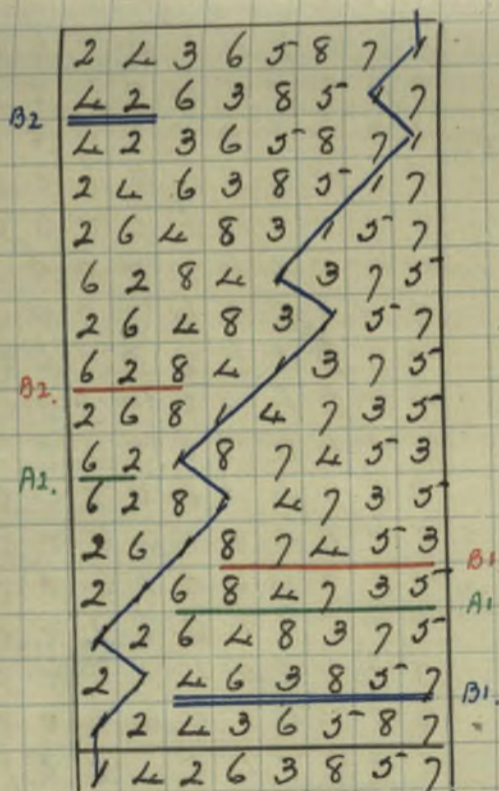 2 4 3 6 5 8 7 1
B2 4 2 6 3 8 5 1 7
4 2 3 6 5 8 7 1
2 4 6 3 8 5 1 7
2 6 4 8 3 1 5 7
6 2 8 4 1 3 7 5
2 6 4 8 3 1 5 7
B2. 6 2 8 4 1 3 7 5
2 6 8 1 4 7 3 5
A2. 6 2 1 8 7 4 5 3
6 2 8 1 4 7 3 5
2 6 1 8 7 4 5 3 B1
2 1 6 8 4 7 3 5 A1
1 2 6 4 8 3 7 5
2 1 4 6 3 8 5 7 B1.
1 2 4 3 6 5 8 7
1 4 2 6 3 8 5 7